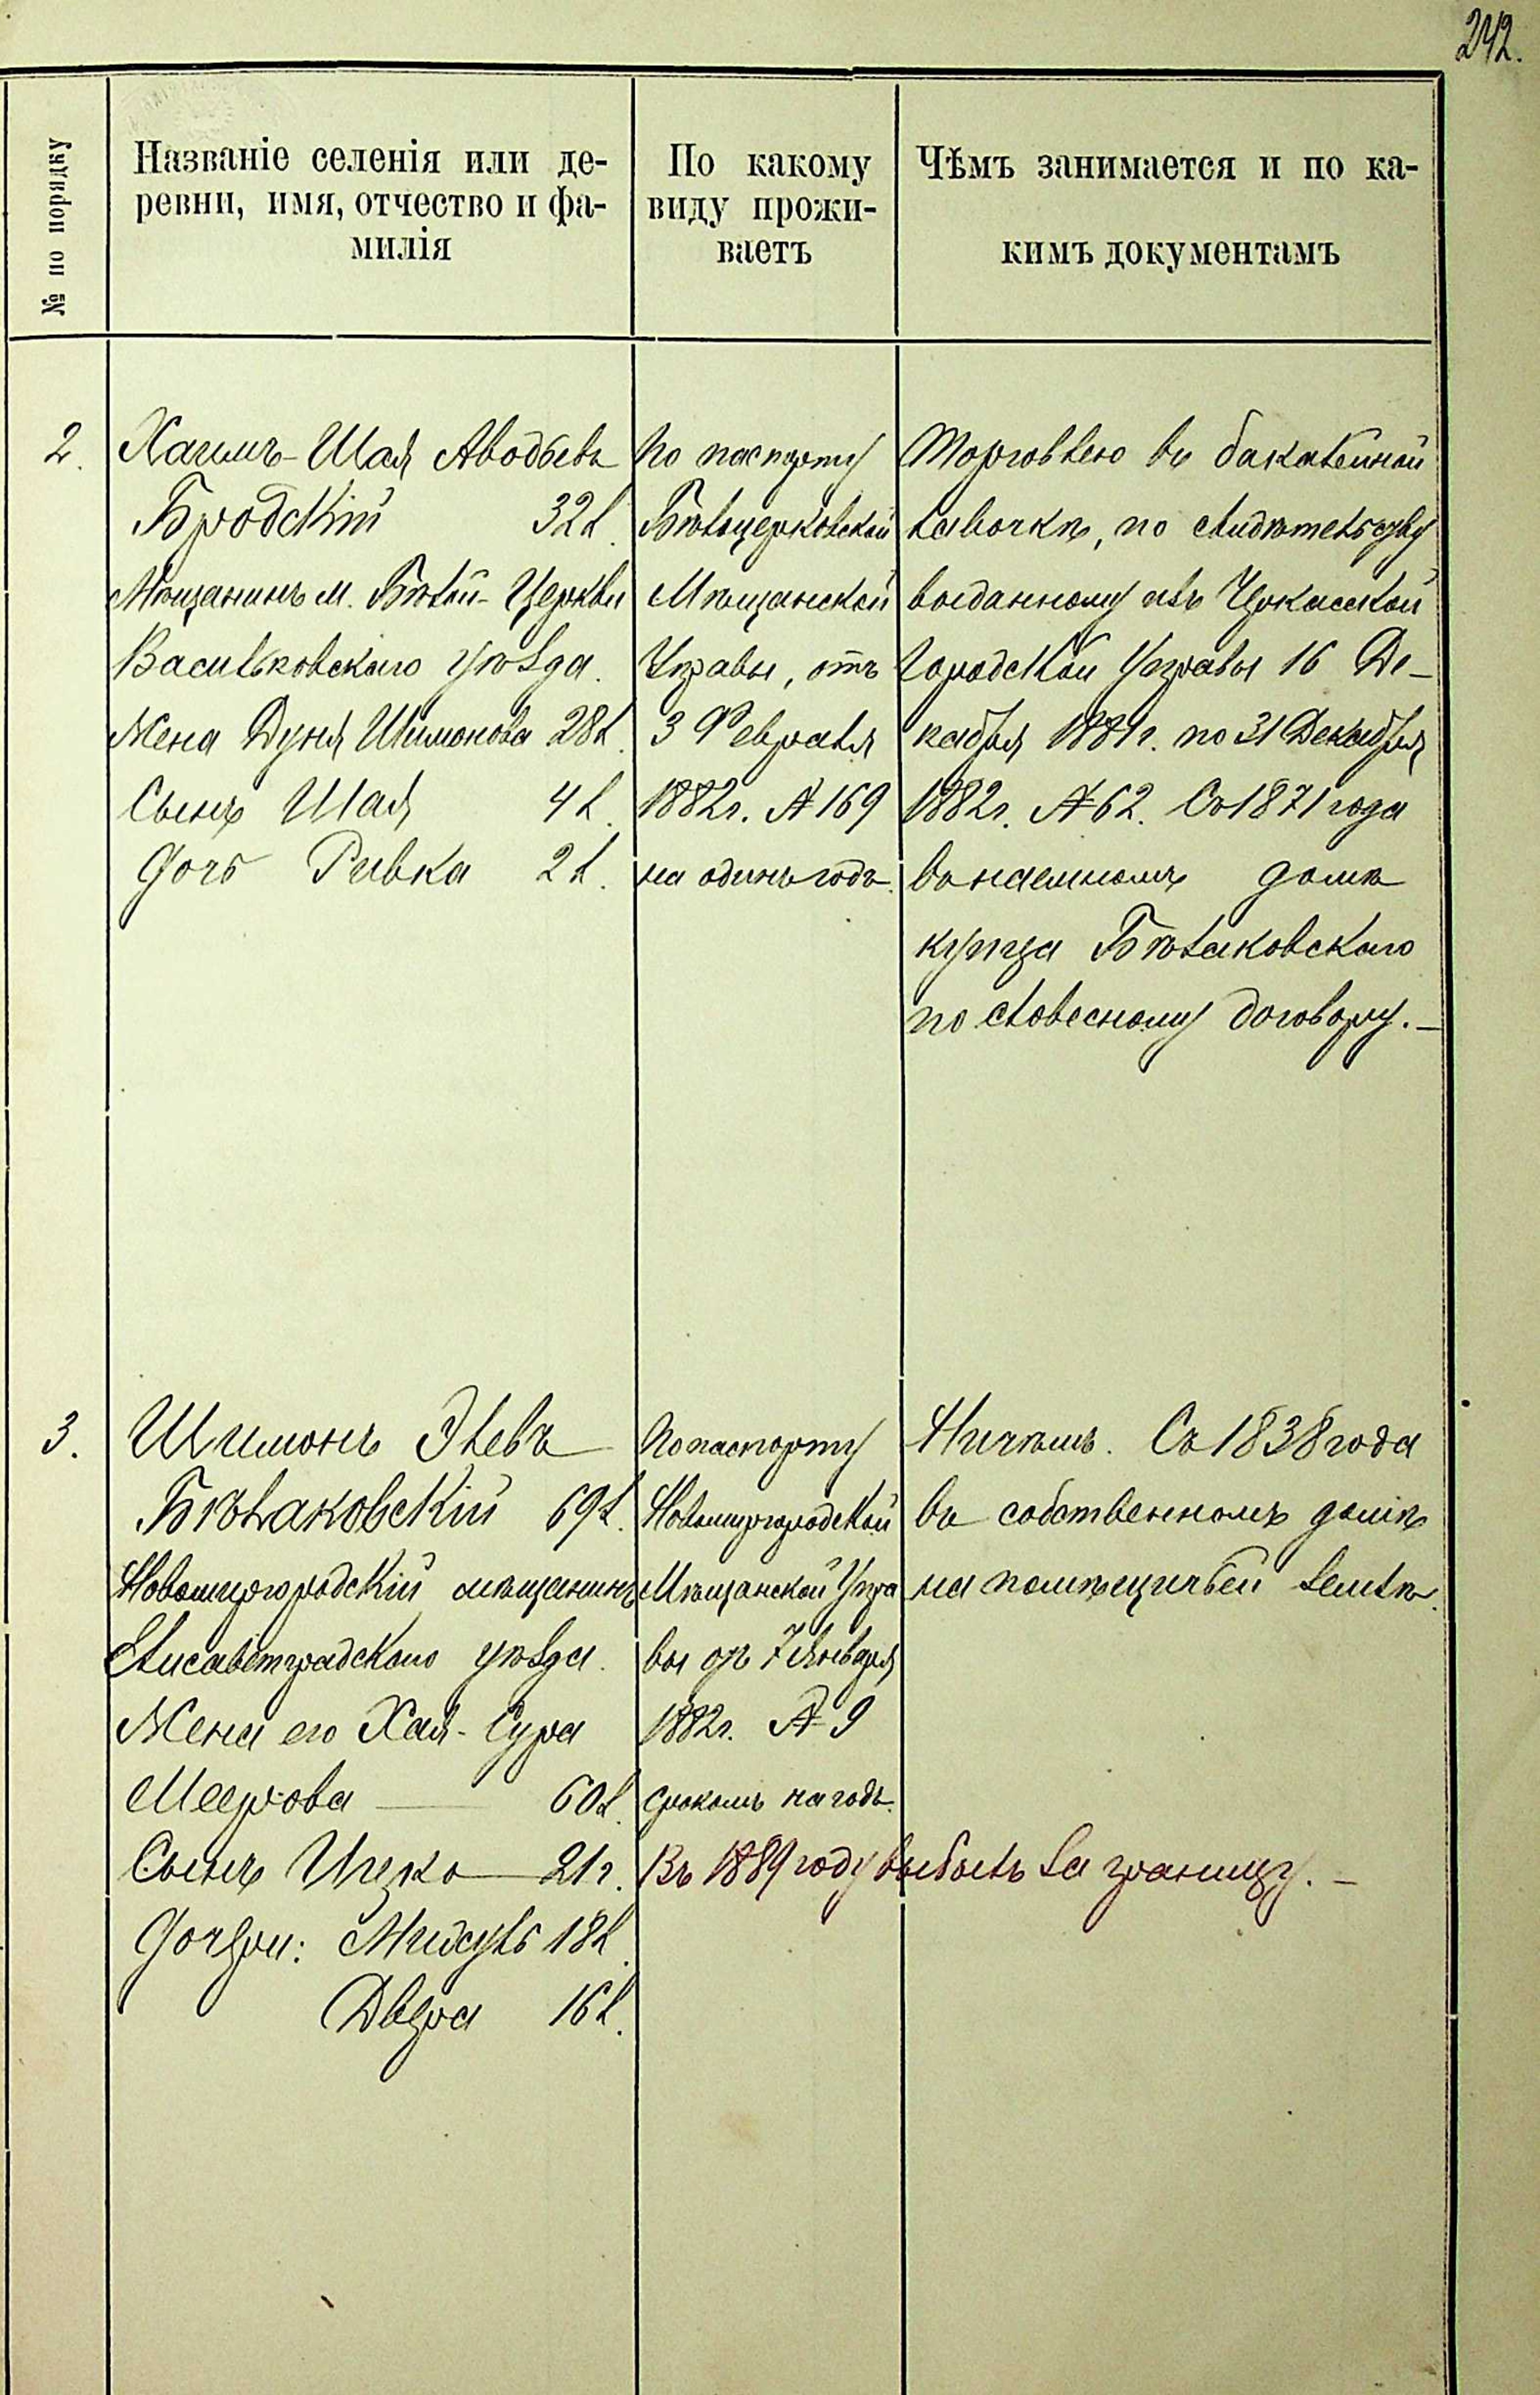 242.
№ по порядку
Названіе селенія или де-
ревни, имя, отчество и фа-
милія
По какому
виду прожи-
ваетъ
Чѣмъ занимается и по ка-
кимъ документамъ
2.
Хаимъ-Шая Аводьевъ
Бродскій 32 л.
Мѣщанинъ м. Бѣлой-Церкви
Васильковскаго уѣзда.
Жена Дуня Шимонова 28 л.
Сынъ Шая 4 л.
Дочь Ривка 2 л.
По паспорту
Бѣлоцерковской
Мѣщанской
Управы, отъ
3 Февраля
1882 г. № 169
на одинъ годъ.
Торговлею въ бакалейной
лавочкѣ, по свидѣтельству
выданному изъ Черкасской
Городской Управы 16 Де-
кабря 1881 г. по 31 Декабря
1882 г. № 62. Съ 1871 года
въ наемномъ домѣ
купца Бѣлаковскаго
по словесному договору.—
3.
Шимонъ Элевъ
Бѣлаковскій 69 л.
Новомиргородскій мѣщанинъ
Елисаветградскаго уѣзда.
Жена его Хая-Сура
Меерова — 60 л.
Сынъ Ицко — 21 г.
Дочери: Мидуль 18 л.
Двера 16 л.
По паспорту
Новомиргородской
Мѣщанской Упра
вы отъ 7 Января
1882 г. № 9
срокомъ на годъ.
Ничѣмъ. Съ 1838 года
въ собственномъ домѣ
на помѣщичьей землѣ.
Въ 1889 году выбылъ за границу.—